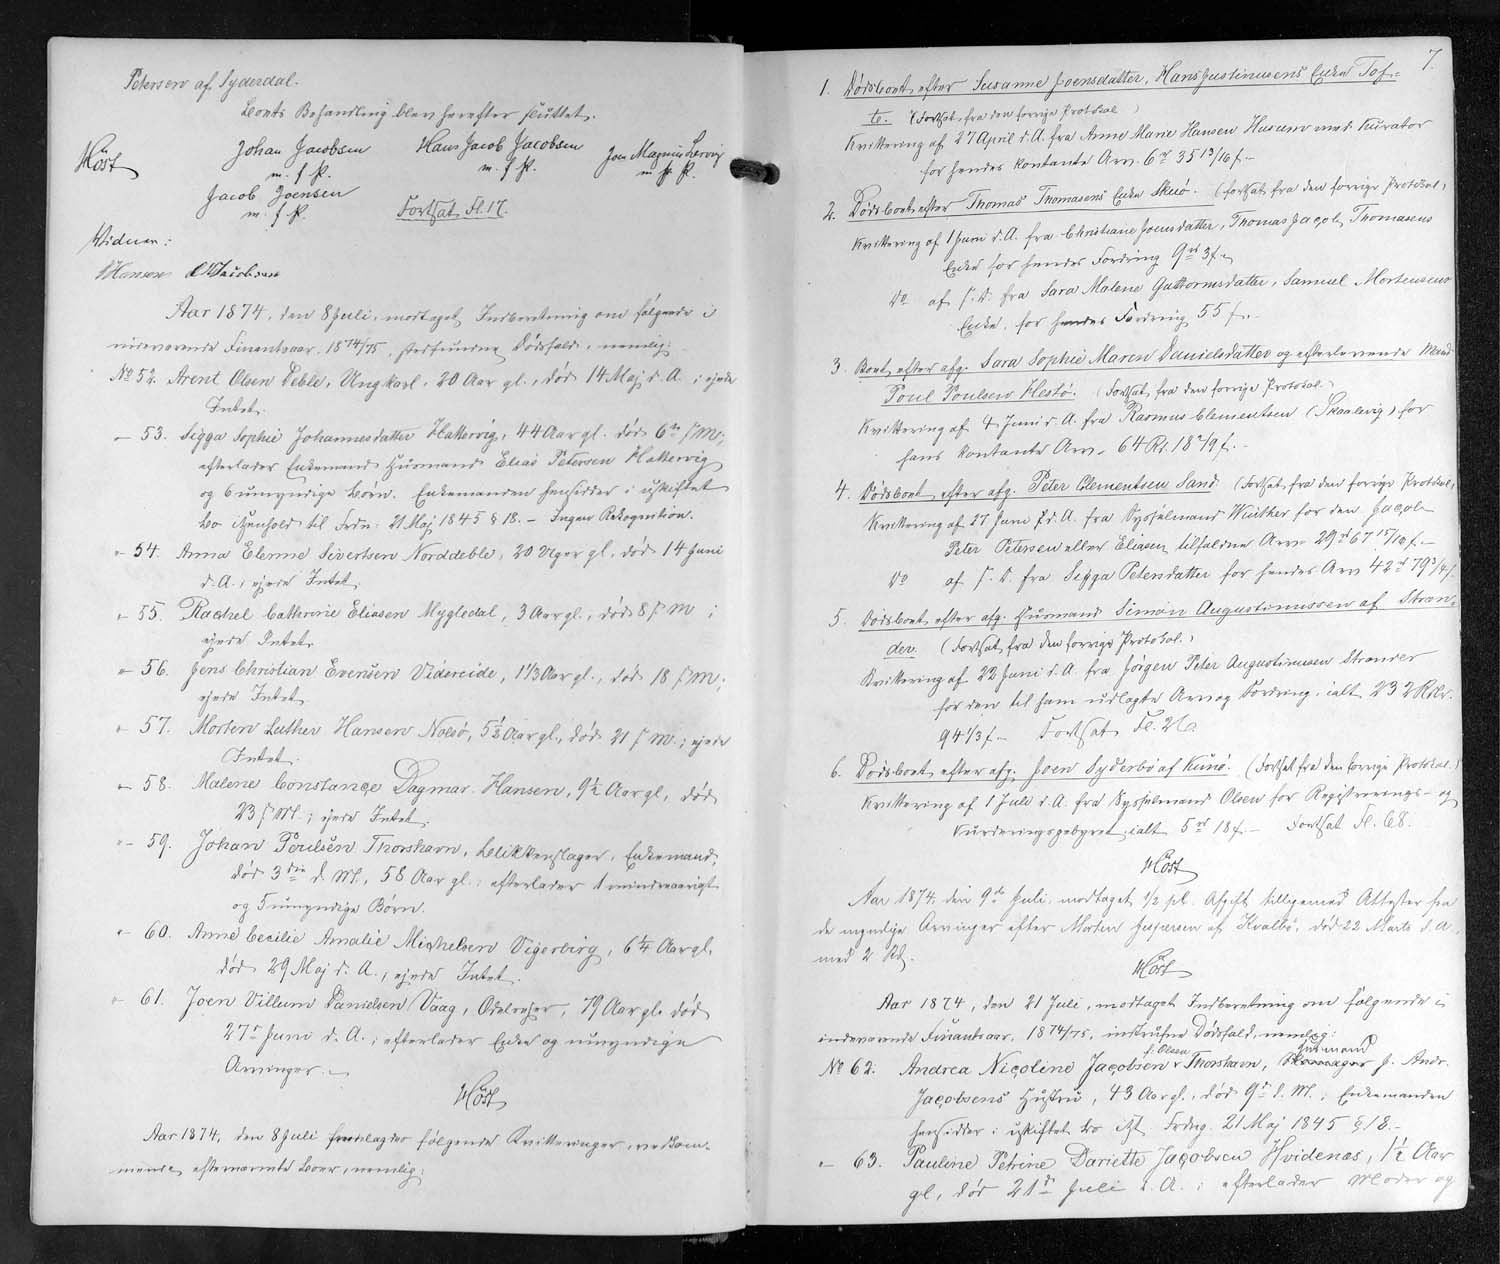 Petersen af Syderdal.
Boets Behandling blev herefter sluttet.
Høst
Johan Jacobsen Hans Jacob Jacobsen Joen Magnus Lervig
m. f. P. m. f. P. m. f. P.
Jacob Joensen
m. f. P. Fortsat Fl. 17.
Vidner:
Hansen Jacobsen
Aar 1874, den 8 Juli, modtaget Indberetning om følgende i
nærværende Finantsaar, 1874/75, stedfundne Dødsfald, nemlig:
No 52. Arent Olsen Deble, Ungkarl, 20 Aar gl., død 14 Maj d. A.; ejede
Intet.
— 53. Sigga Sophie Johannesdatter Hattervig, 44 Aar gl. død 6te s. M.;
efterlader Enkemand Husmand Elias Petersen Hattervig
og 6 umyndige Børn. Enkemanden hensidder i uskiftet
Bo i Henhold til Frdn. 21 Maj 1845 § 18. — Ingen Rekognition.
" 54. Anna Elenne Sivertsen Norddeble, 20 Uger gl., død 14 Juni
d. A., ejede Intet.
" 55. Rachel Cathrine Eliasen Mygledal, 3 Aar gl., død 8 s. M.;
ejede Intet.
" 56. Jens Christian Evensen Videreide, 1 1/3 Aar gl., død 18 s. M.;
ejede Intet.
" 57. Morten Luther Hansen Nolsø, 5 1/2 Aar gl., død 21 s. M.; ejede
Intet.
— 58. Malene Constance Dagmar Hansen, 9 1/2 Aar gl., død
23 s. M.; ejede Intet.
" 59. Johan Poulsen Thorshavn, Blikkenslager, Enkemand,
død 3die d. M., 58 Aar gl.; efterlader 1 mindreaarigt
og 5 umyndige Børn.
" 60. Anne Cecilie Amalie Michelsen Vigerbirg, 6 1/4 Aar gl.
død 29 Maj d. A., ejede Intet.
" 61. Joen Villum Danielsen Vaag, Odelsejer, 79 Aar gl. død
27de Juni d. A.; efterlader Enke og umyndige
Arvinger. —
Høst
Aar 1874, den 8 Juli fremlagdes følgende Kvitteringer, vedkom-
mende efternævnte Boer, nemlig:
7.
1. Dødsboet efter Susanne Joensdatter, Hans Justinusens Enke Tof-
te. (Fortsat fra den forrige Protokol)
Kvittering af 27 April d. A. fra Anne Marie Hansen Husum med Kurator
for hendes kontante Arv. 6 rd 35 13/16 s. —
2. Dødsboet efter Thomas Thomasens Enke Skuø. (Fortsat fra den forrige Protokol)
Kvittering af 1 Juni d. A. fra Christiane Joensdatter, Thomas Jacob Thomasens
Enke for hendes Fordring 9 rd 3 s. —
Do af s. D. fra Sara Malene Guttormsdatter, Samuel Mortensens
Enke, for hendes Fordring 55 s. —
3. Boet efter afg. Sara Sophie Maren Danielsdatter og efterlevende Mand
Poul Poulsen Hestø. (Fortsat fra den forrige Protokol.)
Kvittering af 4 Juni d. A. fra Rasmus Clementsen (Skaalevig) for
hans kontante Arv. 64 Rd. 18 s. —
4. Dødsboet efter afg. Peter Clementsen Sand (Fortsat fra den forrige Protokol)
Kvittering af 27 Juni d. A. fra Sysselmand Winther for den Jacob
Peter Petersen eller Eliasen tilfaldne Arv 29 rd 67 15/16 s. —
Do af s. D. fra Sigga Petersdatter for hendes Arv 42 rd 79 3/4 s.
5. Dødsboet efter afg. Husmand Simon Augustinussen af Stræn-
der. (Fortsat fra den forrige Protokol.)
Kvittering af 22 Juni d. A. fra Jørgen Peter Augustinusen Strænder
for den til ham udlagte Arv og Fordring, ialt 232 Rdlr.
94 1/3 s. — Fortsat Fl. 26
6. Dødsboet efter afg. Joen Syderbø af Kunø. (Fortsat fra den forrige Protokol.)
Kvittering af 1 Juli d. A. fra Sysselmand Olsen for Registrerings- og
Vurderingsgebyret, ialt 5 rd 18 s. — Fortsat Fl. 68.
Høst
Aar 1874, den 9de Juli, modtaget 1/2 pCt. Afgift tilligemed Attester fra
de myndige Arvinger efter Morten Jespersen af Kvalbø, død 22 Marts d. A.
med 2 Rd.
Høst
Aar 1874, den 21 Juli, modtaget Indberetning om følgende i
indeværende Finantsaar, 1874/75, indtrufne Dødsfald, nemlig:
f. Olsen Husmand
No 62. Andrea Nicoline Jacobsen Thorshavn, Skomager J. Andr.
Jacobsens Hustru, 43 Aar gl., død 9de d. M.; Enkemanden
hensidder i uskiftet Bo ifgl. Frdng. 21 Maj 1845 § 18. —
" 63. Pauline Petrine Dariette Jacobsen Hvidenæs, 1 1/2 Aar
gl., død 21de Juli d. A.; efterlader Moder og